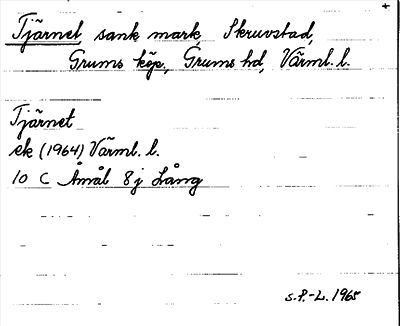 Tjärnet sank mark, Skruvstad,
Grums köp., Grums hd, Värml. l.
Tjärnet
ek (1964) Värml. l.
10 C Åmål 8j Lång
S.P.-L. 1965